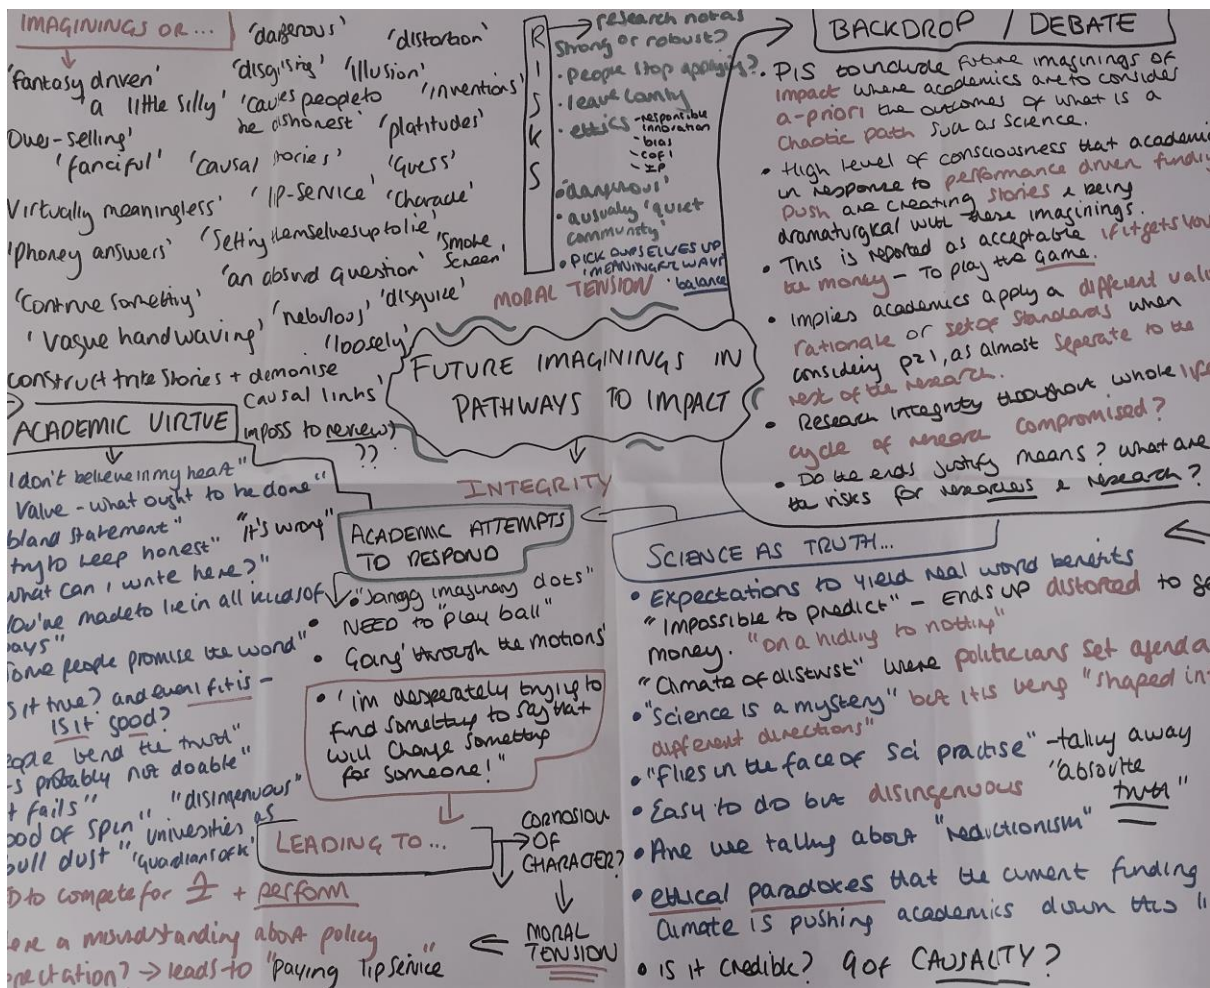 IMAGININGS OR...
'dangerous'
'distortion'
'fantasy driven'
'disgising'
'illusion'
'a little silly'
'causes people to
be dishonest'
'inventions'
Over-selling'
'platitudes'
'fanciful'
'causal stories'
'Guess'
Virtually meaningless'
'lip-service'
'Charade'
'Phoney answers'
'Setting themselves up to lie'
'Smoke
Screen'
'an absurd question'
'Contrive something'
'nebulous'
'disguise'
'Vague handwaving'
'loosely'
construct trite stories + demonise
causal links'
imposs to review?
??
RISKS
research not as
strong or robust?
• people stop applying?
• leave
• ethics - responsible
innovation
- bias
- COFI
- IP
• 'dangerous'
• a usually 'quiet
community'
• PICK OURSELVES UP
balance
MORAL TENSION
FUTURE IMAGININGS IN
PATHWAYS TO IMPACT
INTEGRITY
BACKDROP / DEBATE
• PIS to include future imaginings of
impact where academics are to consider
a-priori the outcomes of what is a
Chaotic path such as Science.
• High level of consciousness that academic
in response to performance driven funding
push are creating stories & being
dramaturgical with these imaginings.
• This is reported as acceptable if it gets you
the money – To play the game.
• Implies academics apply a different value
rationale or set of standards when
considering p2I, as almost seperate to the
rest of the research.
• Research integrity throughout whole life
cycle of research compromised?
• Do the ends justify means? what are
the risks for researchers & research?
ACADEMIC VIRTUE
I don't believe in my heart"
Value - what ought to be done"
bland statement"
try to keep honest"
"it's wrong"
what can I write here?"
You're made to lie in all kinds of
ways"
Some people promise the world"
is it true? and even if it is –
is it good?
people bend the truth"
s probably not doable"
t fails"
"disingenuous"
ood of spin"
universities as
bull dust"
'guardians of k'
D to compete for £ + perform
ere a misunderstanding about policy
→ leads to "paying lipservice
ACADEMIC ATTEMPTS
TO RESPOND
• imaginary dots"
• NEED to "play ball"
• Going 'through the motions'
• 'im desperately trying to
find something to say that
will change something
for someone!"
LEADING TO...
CORROSION
OF
CHARACTER?
MORAL
TENSION
SCIENCE AS TRUTH...
• Expectations to yield real world benefits
"Impossible to predict" – Ends up distorted to ge
money. "on a hiding to nothing"
"Climate of distrust" where politicians set agenda
• "Science is a mystery" but it is being "shaped in
different directions"
• "Flies in the face of sci practise" – taking away
"absolute
truth"
• Easy to do but disingenuous
• Are we talking about "reductionism"
• ethical paradoxes that the current funding
climate is pushing academics down this "
• is it credible? Q of CAUSALITY?